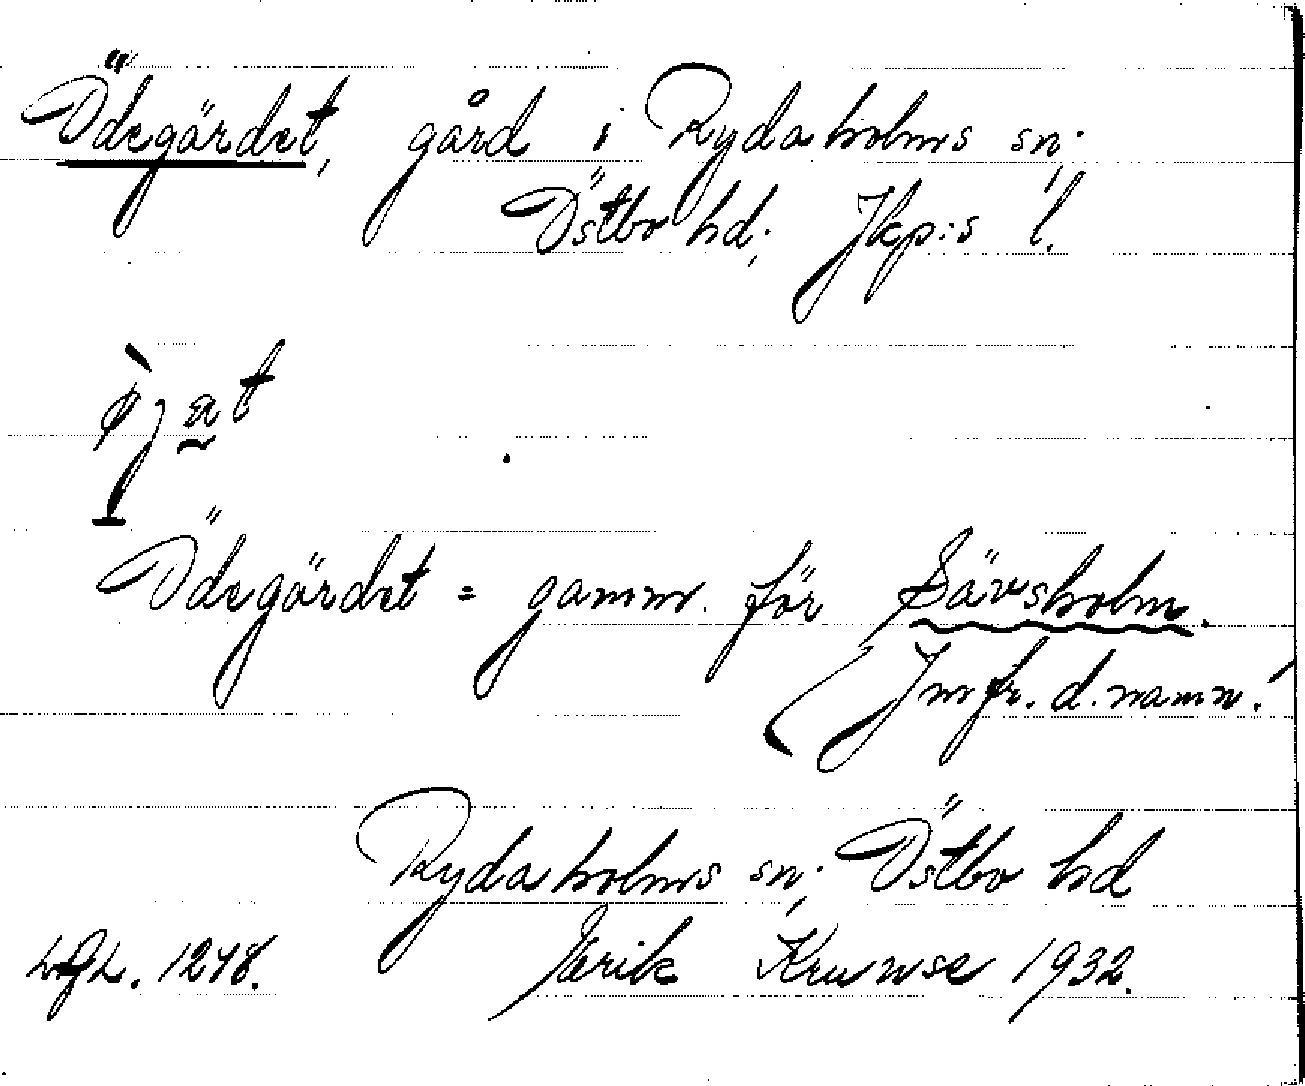 Ödegärdet, gård i Rydaholms sn;
Östbo hd; Jkp:s l.
Ödegärdet = gamm. för Sävsholm.
(Jmfr. d. namn!
Rydaholms sn; Östbo hd
1248. Erik Krunse 1932.